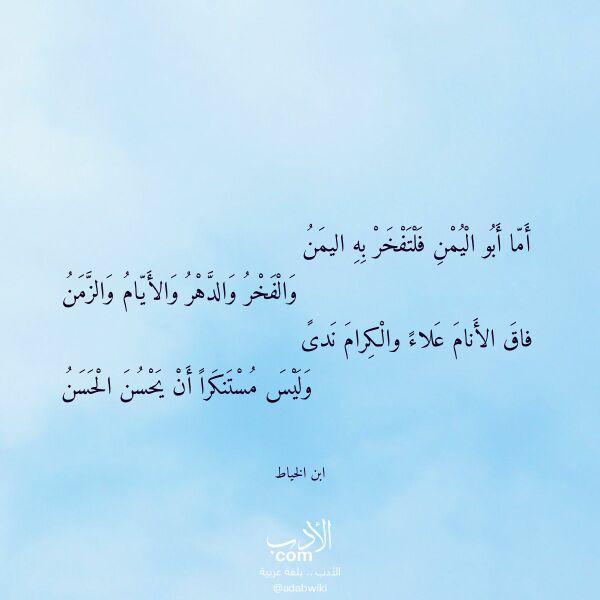 أَمّا أَبُو الْيُمْنِ فَلْتَفْخَرْ بِهِ اليمَنُ
وَالْفَخْرُ وَالدَّهْرُ وَالأَيّامُ وَالزَّمَنُ
فاقَ الأَنامَ عَلاءً والْكِرامَ نَدىً
وَلَيْسَ مُسْتَنكَراً أَنْ يَحْسُنَ الْحَسَنُ
ابن الخياط
الأدب
com
الأدب .. بلغة عربية
@adabwiki